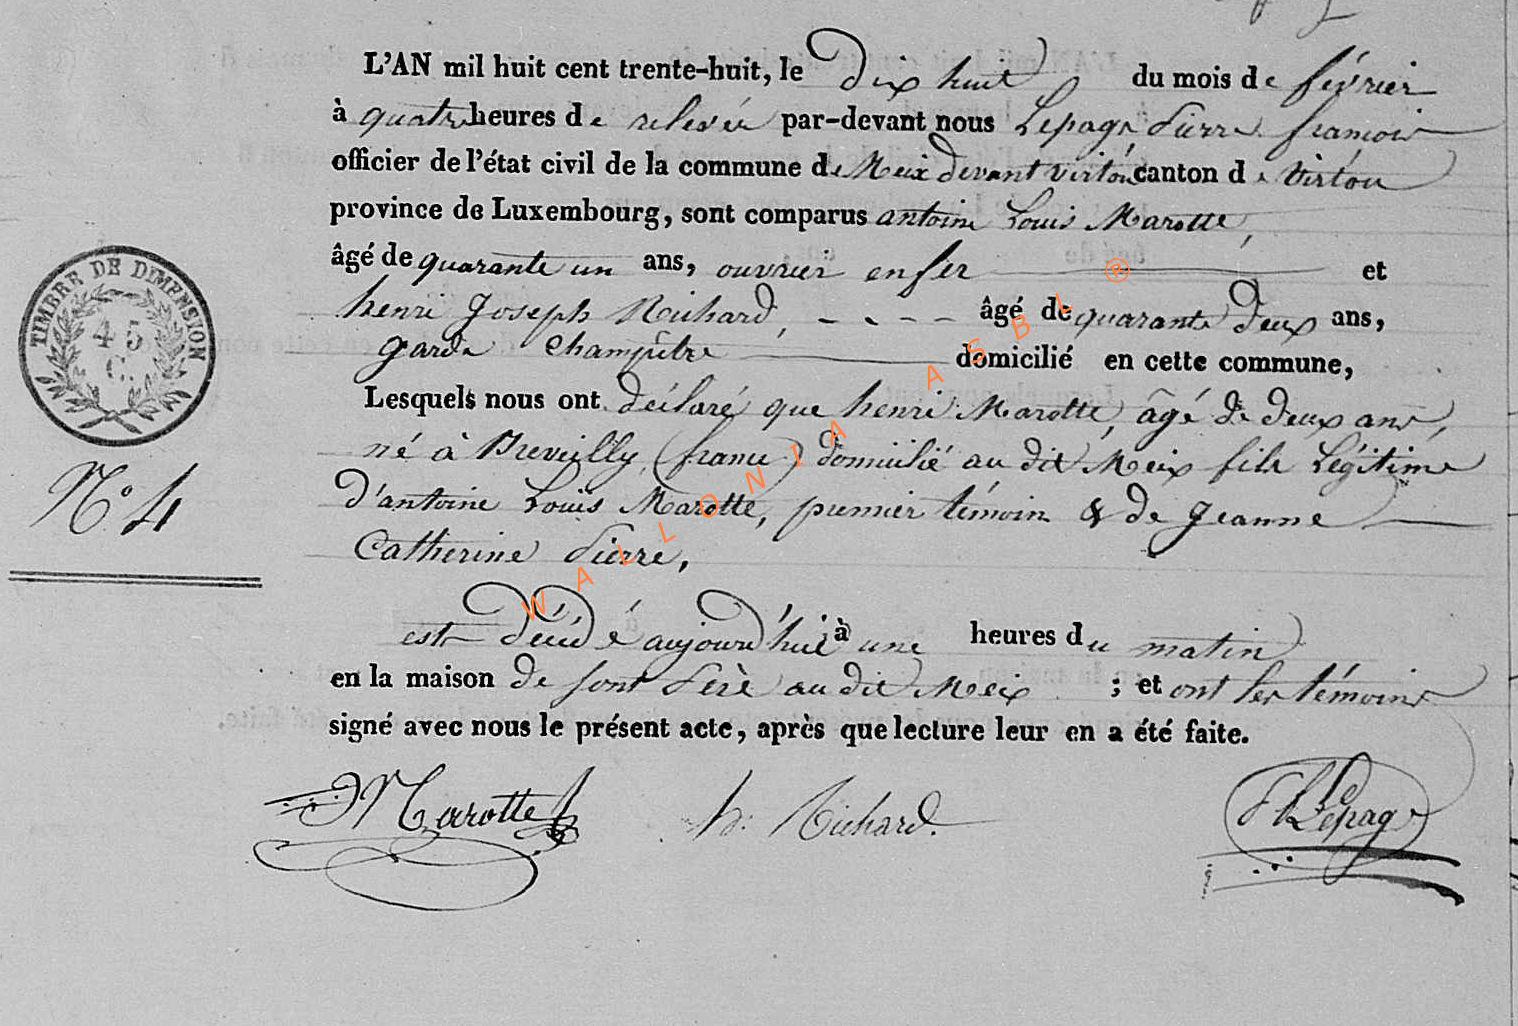 L'AN mil huit cent trente-huit, le dix huit du mois de février
à quatre heures de relevée par-devant nous Lepage Pierre françois
officier de l'état civil de la commune de Meix devant virton canton de virton
province de Luxembourg, sont comparus antoine Louis Marotte,
âgé de quarante un ans, ouvrier en fer et
henri Joseph Richard, - - - - âgé de quarante deux ans,
garde Champêtre domicilié en cette commune,
Lesquels nous ont déclaré que henri Marotte, âgé de deux ans,
né à Breveilly, (france) domicilié au dit Meix fils Légitime
d'antoine Louis Marotte, premier témoin & de Jeanne
Catherine Pierre,
est décédé aujourd'hui à une heures du matin
en la maison de sont Père au dit Meix ; et ont les témoins
signé avec nous le présent acte, après que lecture leur en a été faite.
Marotte h: Richard. Lepage
TIMBRE DE DIMENSION
45
C.
N.° 4
WALLONIA ASBL ®